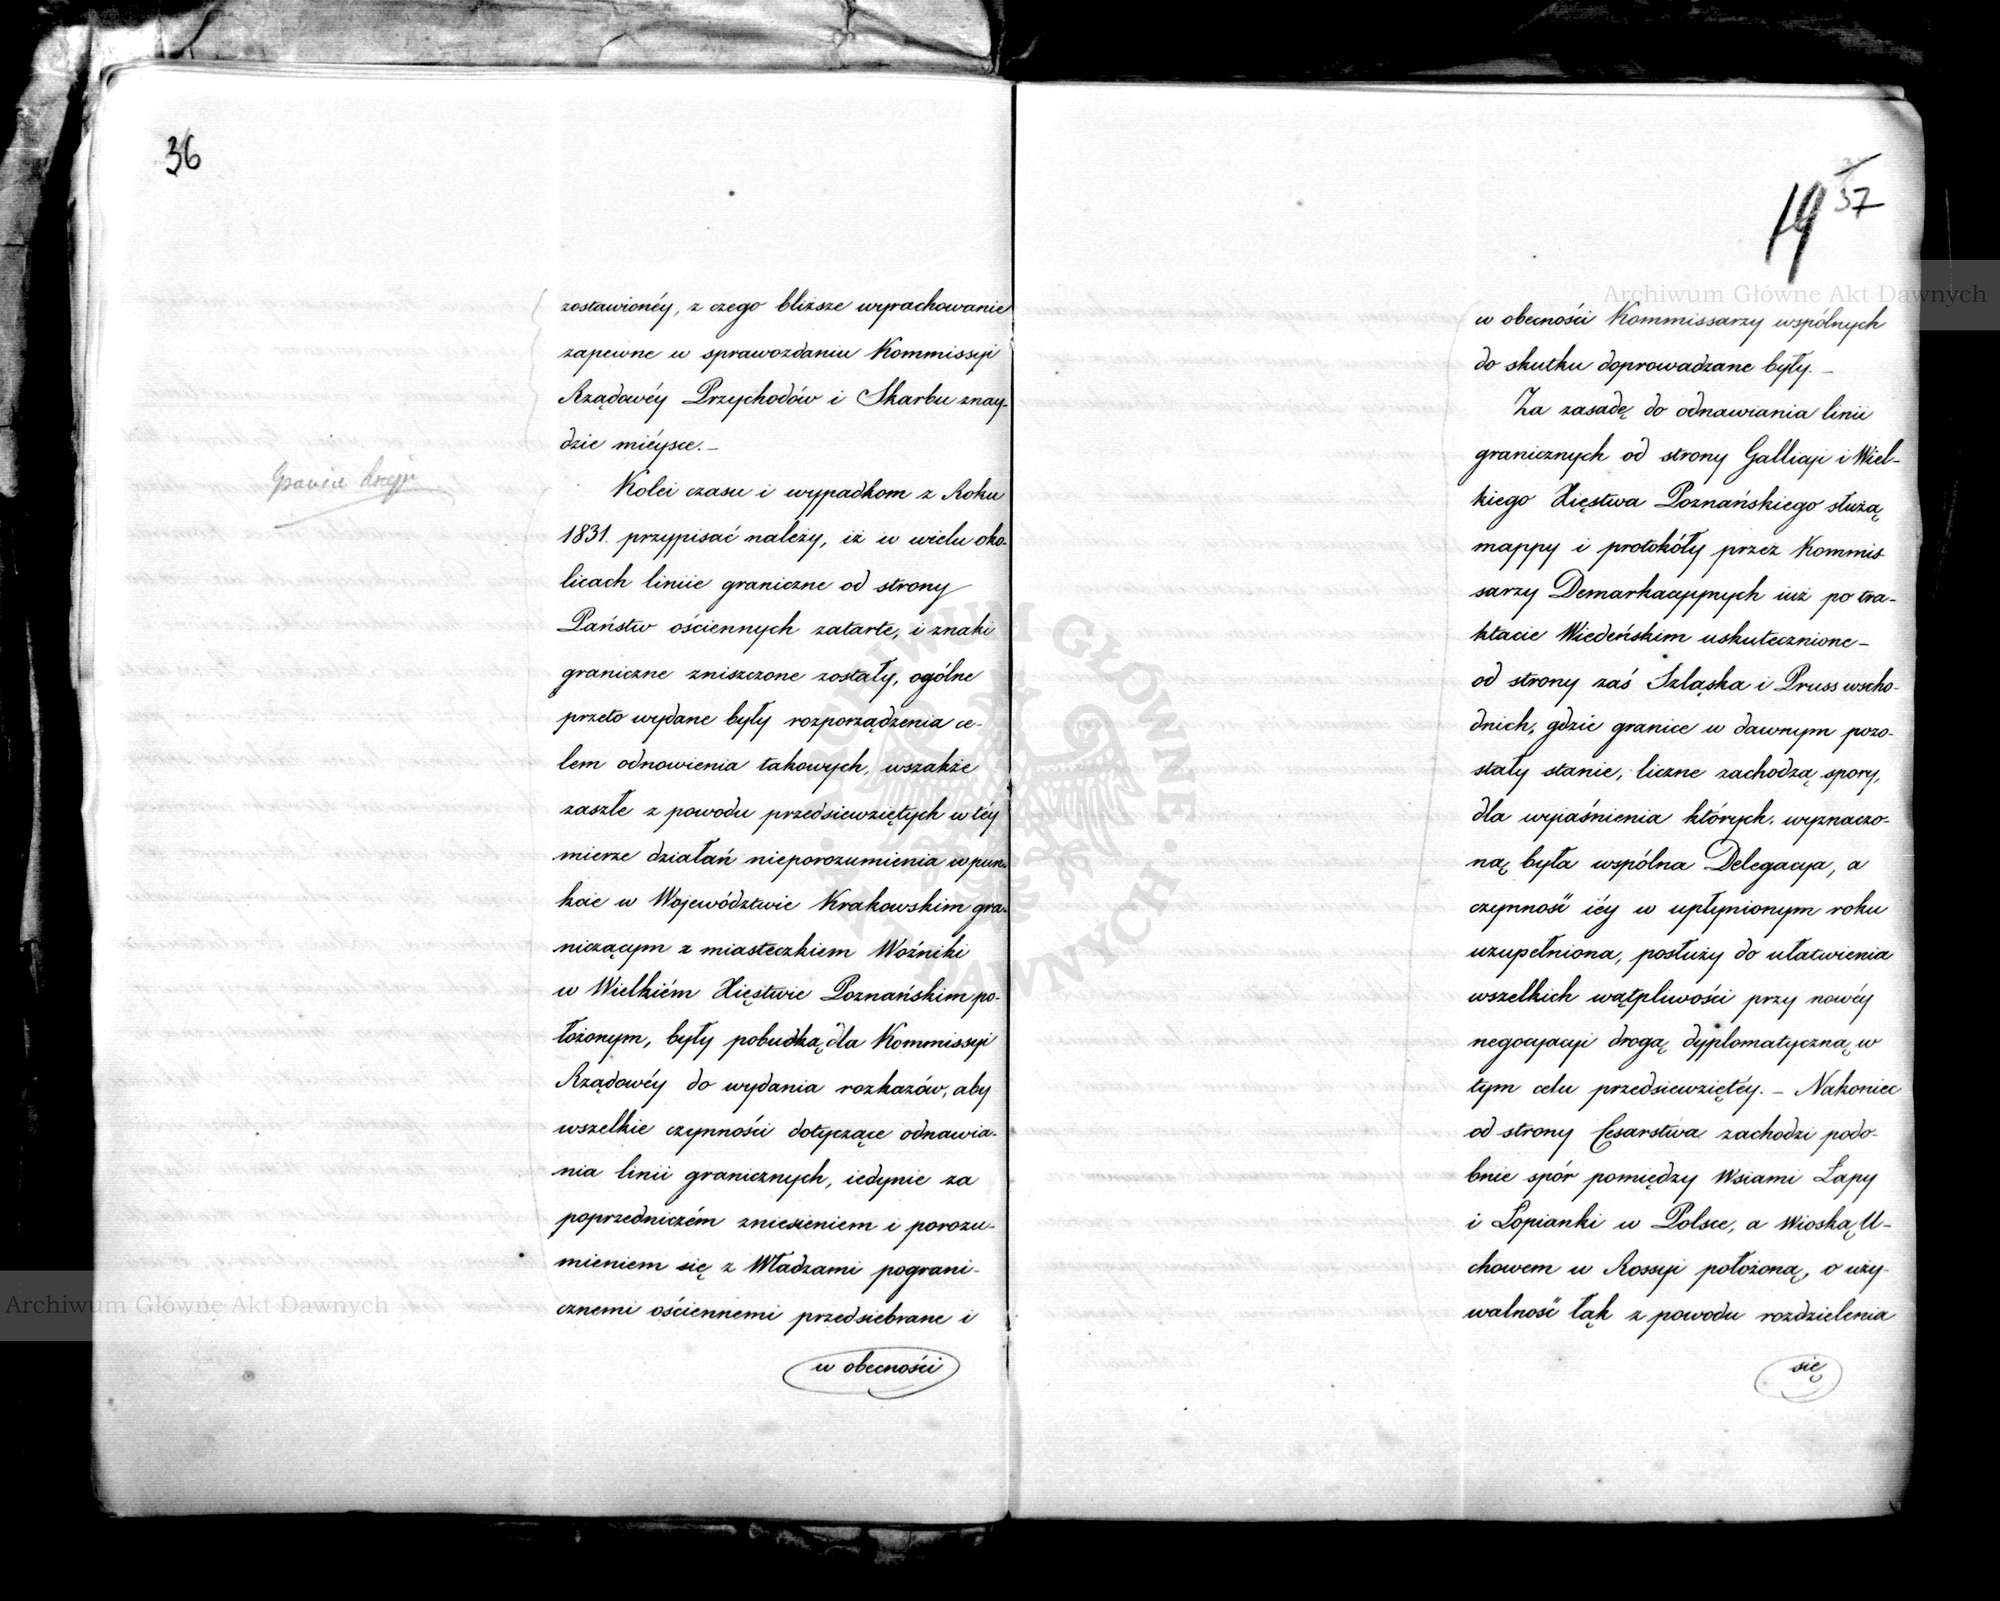 36
zostawionéy, z czego bliższe wyrachowanie
zapewne w sprawozdaniu Kommissyi
Rządowéy Przychodów i Skarbu znay-
dzie mieysce. –
Kolei czasu i wypadkom z Roku
1831. przypisać należy, iż w wielu oko-
licach liniie graniczne od strony
Państw ościennych zatarte, i znaki
graniczne zniszczone zostały, ogólne
przeto wydane były rozporządzenia ce-
lem odnowienia takowych, wszakże
zaszłe z powodu przedsiewziętych w téy
mierze działań nieporozumienia w pun-
kcie w Województwie Krakowskim gra-
niczącym z miasteczkiem Woźniki
w Wielkiém Xięstwie Poznańskim po-
łożonym, były pobudką dla Kommissyi
Rządowéy do wydania rozkazów, aby
wszelkie czynności dotyczące odnawia-
nia linii granicznych, iedynie za
poprzedniczém zniesieniem i porozu-
mieniem się z Władzami pograni-
cznemi ościennemi przedsiebrane i
w obecności
37
19
w obecności Kommissarzy wspólnych
do skutku doprowadzane były. –
Za zasadę do odnawiania linii
granicznych od strony Gallicyi i Wiel-
kiego Xięstwa Poznańskiego służą
mappy i protokóły przez Kommis-
sarzy Demarkacyjnych iuż po tra-
ktacie Wiedeńskim uskutecznione –
od strony zaś Szląska i Pruss wscho-
dnich, gdzie granice w dawnym pozo-
stały stanie, liczne zachodzą spory,
dla wyiaśnienia których, wyznaczo-
ną była wspólna Delegacya, a
czynność iéy w upłynionym roku
uzupełniona, posłuży do ułatwienia
wszelkich wątpliwości przy nowéy
negocyacyi drogą dyplomatyczną w
tym celu przedsiewziętéy. – Nakoniec
od strony Cesarstwa zachodzi podo-
bnie spór pomiędzy Wsiami Łapy
i Łopianki w Polsce, a Wioską U-
chowem w Rossyi położoną, o uży-
walność łąk z powodu rozdzielenia
się
Archiwum Główne Akt Dawnych
Archiwum Główne Akt Dawnych
ARCHIWUM GŁÓWNE AKT DAWNYCH